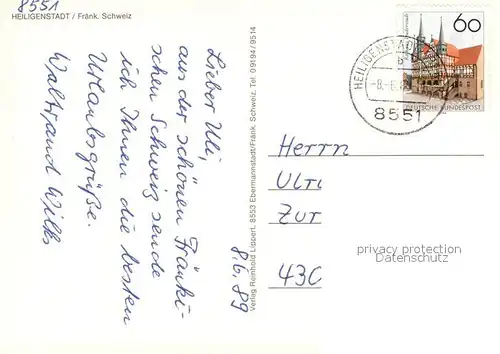 8551
HEILIGENSTADT / Fränk. Schweiz
Lieber Uli,
aus der schönen Fränki-
schen Schweiz sende
ich Ihnen die besten
Urlaubsgrüße.
Waltraud Wilks
8.6.89
Verlag Reinhold Lippert, 8553 Ebermannstadt/Fränk. Schweiz, Tel. 0 91 94 / 95 14
60
DEUTSCHE BUNDESPOST
HEILIGENSTADT
8551
Herrn
Zur
430
privacy protection
Datenschutz